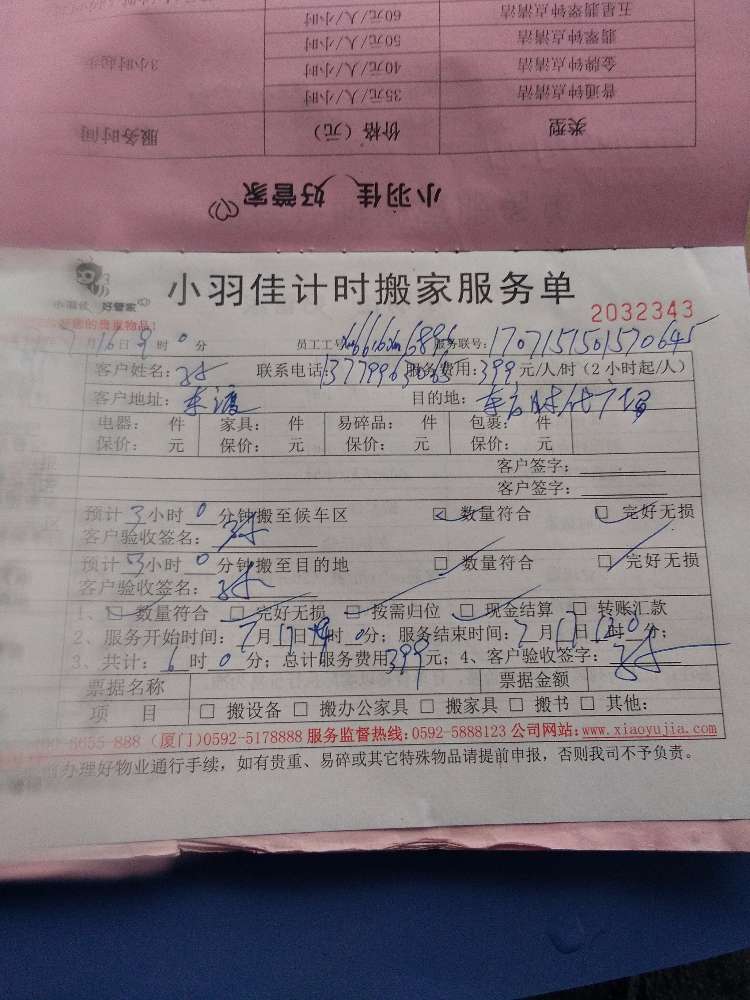 五星翡翠钟点清洁 60元/人/小时
翡翠钟点清洁 50元/人/小时
金牌钟点清洁 40元/人/小时 3小时起步
普通钟点清洁 35元/人/小时
类型 价格（元） 服务时间
小羽佳 好管家
小羽佳 好管家
小羽佳计时搬家服务单
2032343
您的贵重物品：
月16日9时0分 员工工号 服务联号：1707151501570645
客户姓名： 联系电话 服务费用：399元/人/时（2小时起/人）
客户地址：东渡 目的地：
电器： 件 家具： 件 易碎品： 件 包裹： 件
保价： 元 保价： 元 保价： 元 保价： 元
客户签字：
客户签字：
预计3小时0分钟搬至候车区 数量符合 完好无损
客户验收签名：
预计3小时0分钟搬至目的地 数量符合 完好无损
客户验收签名：
1、 数量符合 完好无损 按需归位 现金结算 转账汇款
2、服务开始时间：7月17日9时0分；服务结束时间：7月17日 时 分；
3、共计：6时0分；总计服务费用399元；4、客户验收签字：
票据名称 票据金额
项 目 搬设备 搬办公家具 搬家具 搬书 其他：
5655-888 (厦门)0592-5178888 服务监督热线：0592-5888123 公司网站：www.xiaoyujia.com
办理好物业通行手续，如有贵重、易碎或其它特殊物品请提前申报，否则我司不予负责。